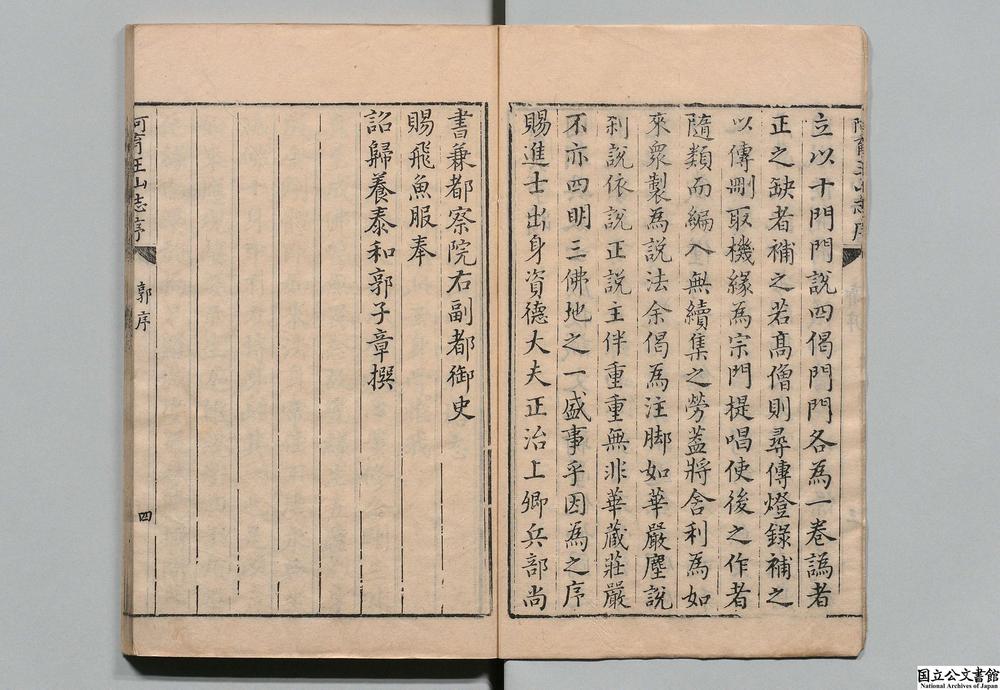 立以十門門說四偈門門各為一卷譌者
正之缺者補之若髙僧則尋傳燈錄補之
以傳刪取機緣為宗門提唱使後之作者
隨類而編入無續集之勞葢將舍利為如
來眾製為說法余偈為注脚如華嚴塵說
刹說依說正說主伴重重無非華蔵莊嚴
不亦四明三佛地之一盛事乎因為之序
賜進士出身資德大夫正治上卿兵部尚
書兼都察院右副都御史
賜飛魚服奉
詔歸養泰和郭子章撰
阿育王山志序
郭序
四
国立公文書館
National Archives of Japan